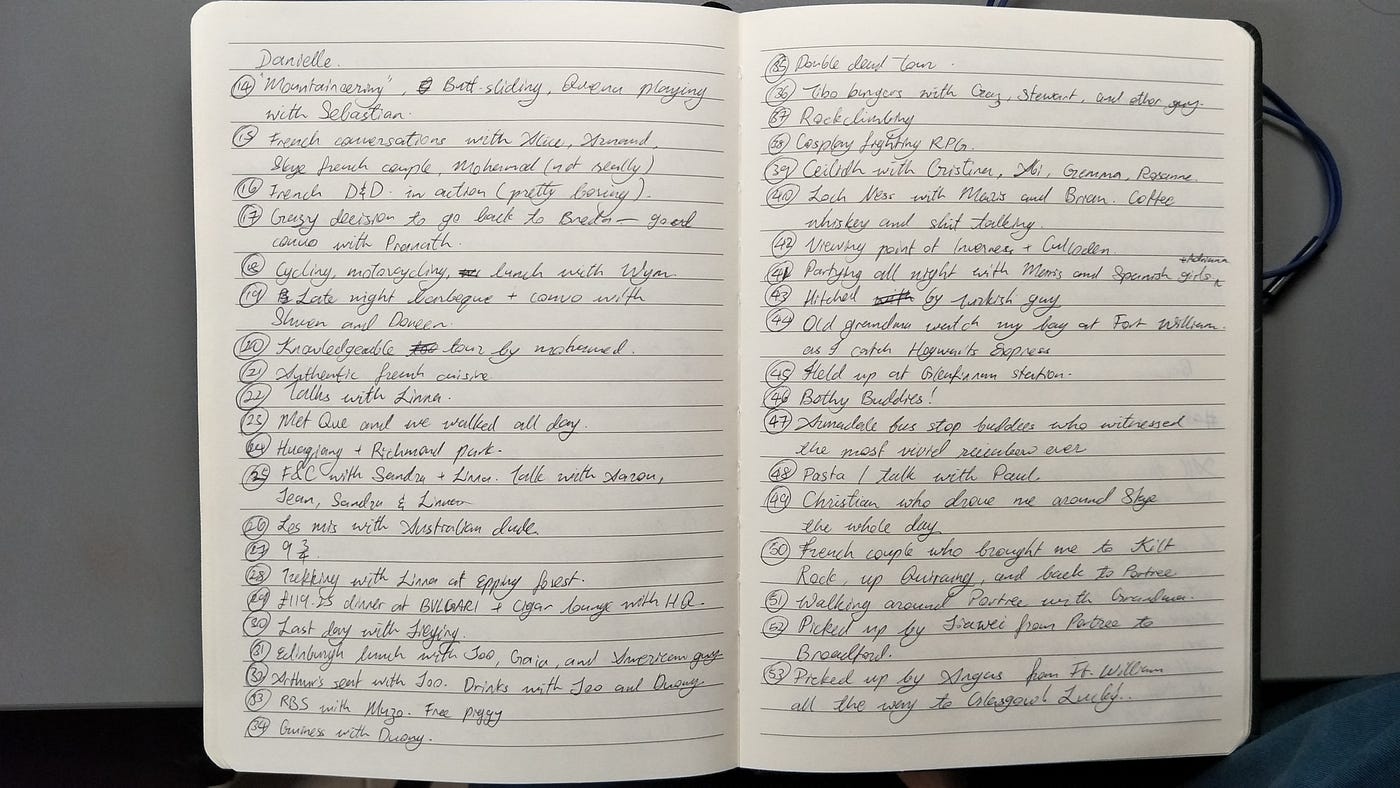 Danielle.
(14) "Mountaineering", Butt-sliding, playing
with Sebastian.
(15) French conversations with Alice, Armand,
Skye french couple, Mohamad (not really)
(16) French D&D. in action (pretty boring).
(17) Crazy decision to go back to Breda — good
convo with Pranath.
(18) Cycling, motorcycling, lunch with Wym.
(19) Late night barbeque + convo with
Shwen and Doreen.
(20) Knowledgeable tour by mohamed.
(21) Authentic french cuisine.
(22) Talks with Linna.
(23) Met Que and we walked all day.
(24) Huaqiang + Richmond Park.
(25) F&C with Sandra + Linna. Talk with Aaron,
Jean, Sandra & Linna
(26) Les mis with Australian dude
(27) 9 3/4.
(28) Trekking with Linna at Epping forest.
(29) £119.25 dinner at BVLGARI + Cigar lounge with HQ.
(30) Last day with Jieying.
(31) Edinburgh lunch with Joo, Gaia, and American guy
(32) Arthur's seat with Joo. Drinks with Joo and Duony
(33) RBS with Muzo. Free piggy
(34) Guiness with Duony.
(35) Double dead tour.
(36) Tibo burgers with Craz, Stewart, and other guy.
(37) Rockclimbing
(38) Cosplay fighting RPG.
(39) Ceilidh with Cristina, Abi, Gemma, Rosanne.
(40) Loch Ness with Maris and Brian. Coffee
whiskey and shit talking.
(42) Viewing point of Inverness + Culloden.
(41) Partying all night with Maris and Spanish girls
(43) Hitched by turkish guy
(44) Old grandma watch my bag at Fort William.
as I catch Hogwarts Express
(45) Held up at Glenfinnan station.
(46) Bothy Buddies!
(47) Armadale bus stop buddies who witnessed
the most vivid rainbow ever
(48) Pasta / talk with Paul.
(49) Christian who drove me around Skye
the whole day
(50) French couple who brought me to Kilt
Rock, up Quiraing, and back to Portree
(51) Walking around Portree with Grandma.
(52) Picked up by Jiawei from Portree to
Broadford.
(53) Picked up by Angus from Ft. William
all the way to Glasgow! Lucky..